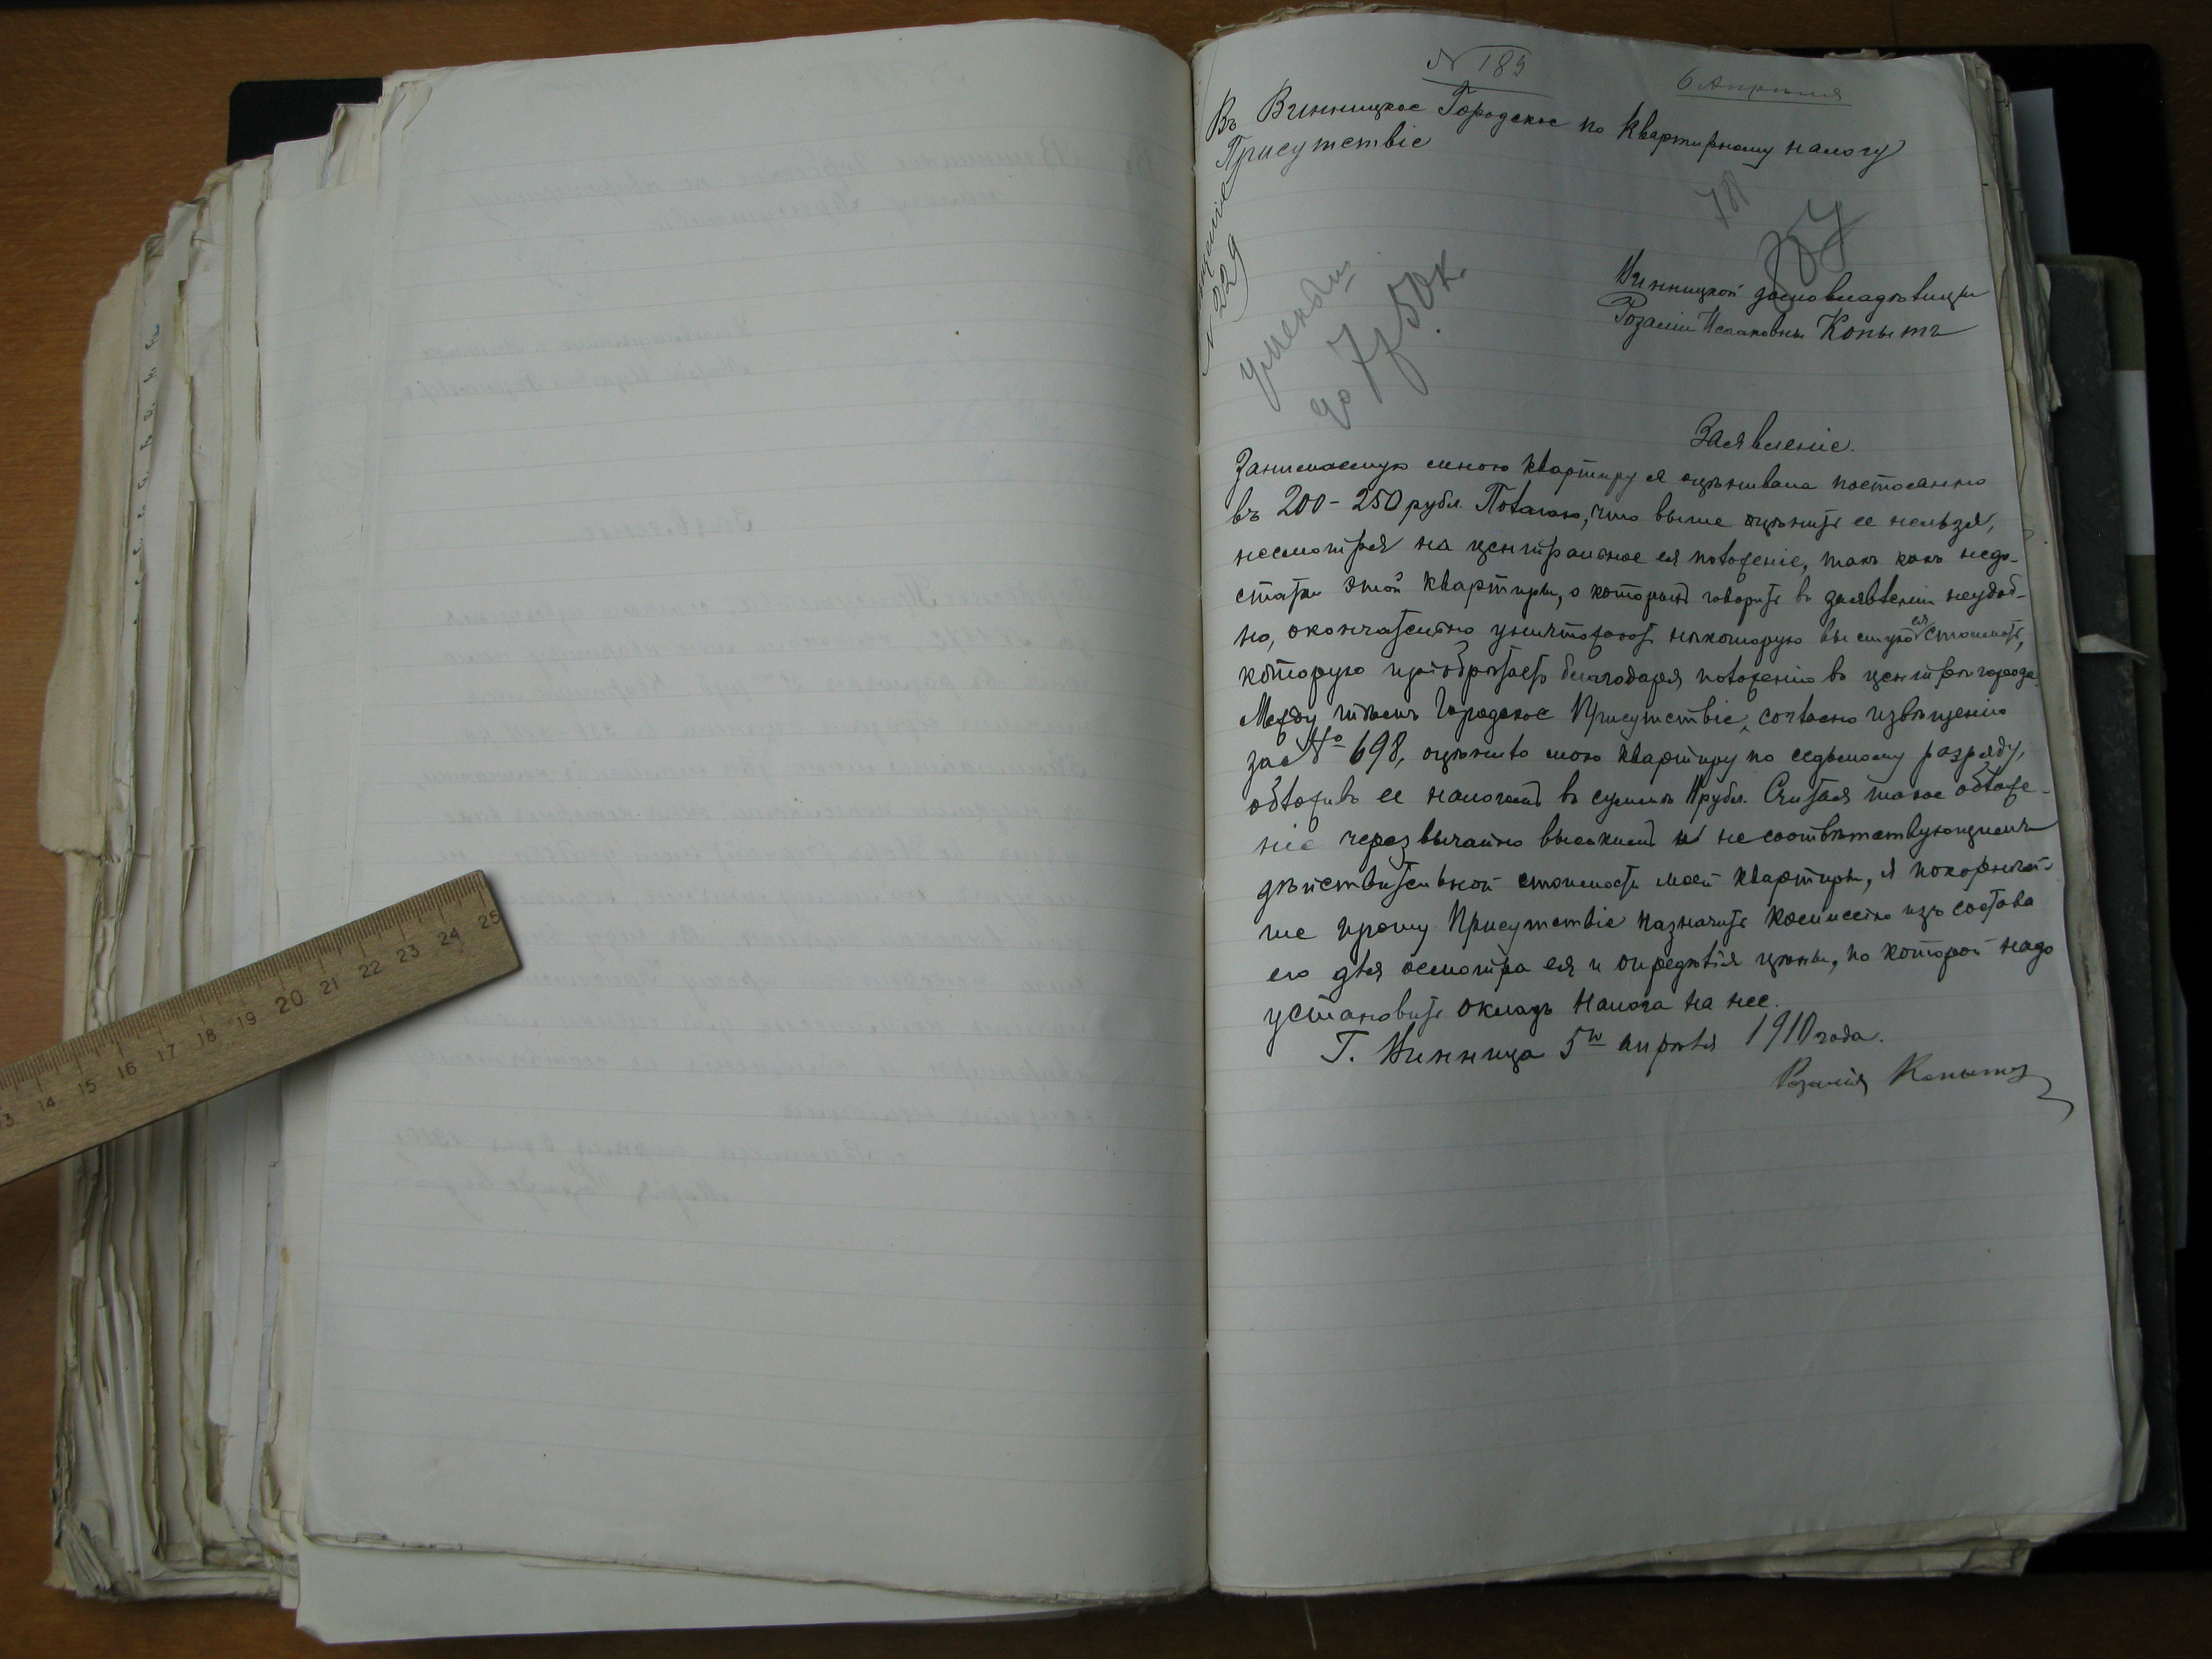 N 189
6 Апреля
Въ Винницкое Городское по Квартирному налогу
Присутствіе
N 229
уменьш
до 7р 50к.
Винницкой домовладѣлицы
Розаліи Исааковны Копытъ
Заявленіе.
Занимаемую мною квартиру я оцѣнивала постоянно
въ 200-250 рубл. Полагаю, что выше оцѣнить ее нельзя,
несмотря на центральное ея положеніе, такъ какъ недо-
статки этой квартиры, о которыхъ говорить въ заявленіи неудоб-
но, окончательно уничтожаютъ нѣкоторую ея стоимость,
которую пріобрѣтаетъ благодаря положенію въ центрѣ города.
Между тѣмъ Городское Присутствіе, согласно извѣщенію
за № 698, оцѣнило мою квартиру по седьмому разряду,
обложивъ ее налогомъ въ суммѣ 11 рубл. Считая такое обложе-
ніе черезвычайно высокимъ и несоотвѣтствующимъ
дѣйствительной стоимости моей квартиры, я покорнѣй-
ше прошу Присутствіе назначить комиссію изъ состава
его для осмотра ея и опредѣлія цѣны, по которой надо
установить окладъ налога на нее.
Г. Винница 5го апрѣля 1910 года.
Розалія Копытъ